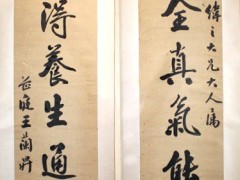 偉之大兄大人屬
全真氣能
得養生通
益庭王蘭昇